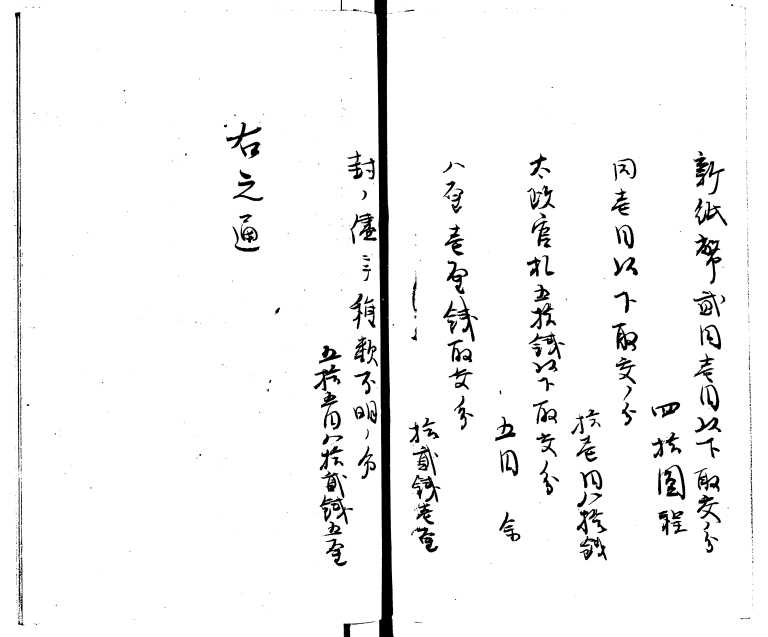 新紙幣貳円壱円以下取交分
四拾圓程
同壱円以下取交ノ分
拾壱円八拾銭
太政官札五拾銭以下取交分
五円余
八厘壱厘銭取交分
拾貳銭壱厘
封ノ儘ニテ種類不明ノ分
五拾五円八拾貳銭五厘
右之通